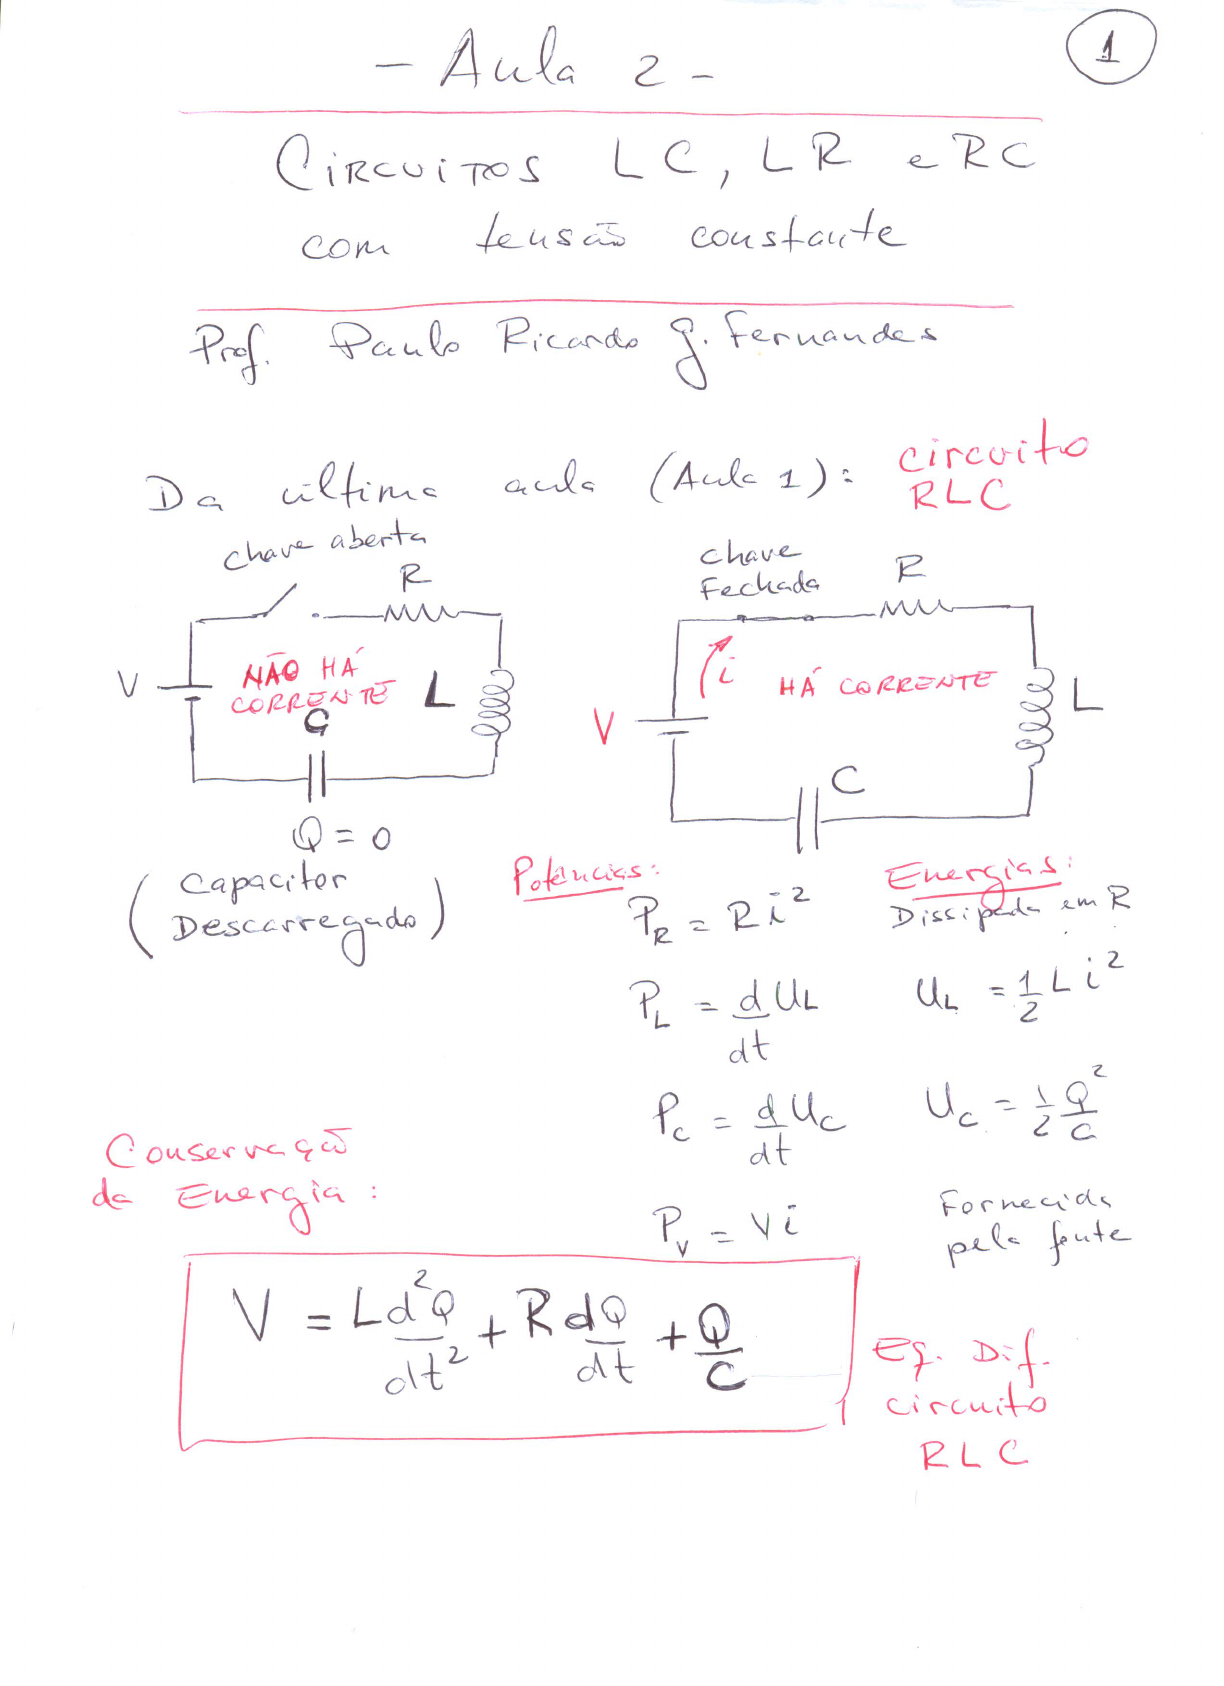 - Aula 2 -
1
CIRCUITOS LC, LR e RC
com tensão constante
Prof. Paulo Ricardo G. Fernandes
Da última aula (Aula 1): circuito
RLC
chave aberta
R
V
NÃO HÁ
CORRENTE
L
C
Q = 0
(Capacitor
Descarregado)
chave
Fechada
R
i
HÁ CORRENTE
V
L
C
Potências:
P_R = R i²
P_L = d/dt U_L
P_C = d/dt U_C
P_V = V i
Energias:
Dissipada em R
U_L = 1/2 L i²
U_C = 1/2 Q²/C
Fornecida
pela fonte
Conservação
da Energia:
V = L d²Q/dt² + R dQ/dt + Q/C
Eq. Dif.
circuito
RLC